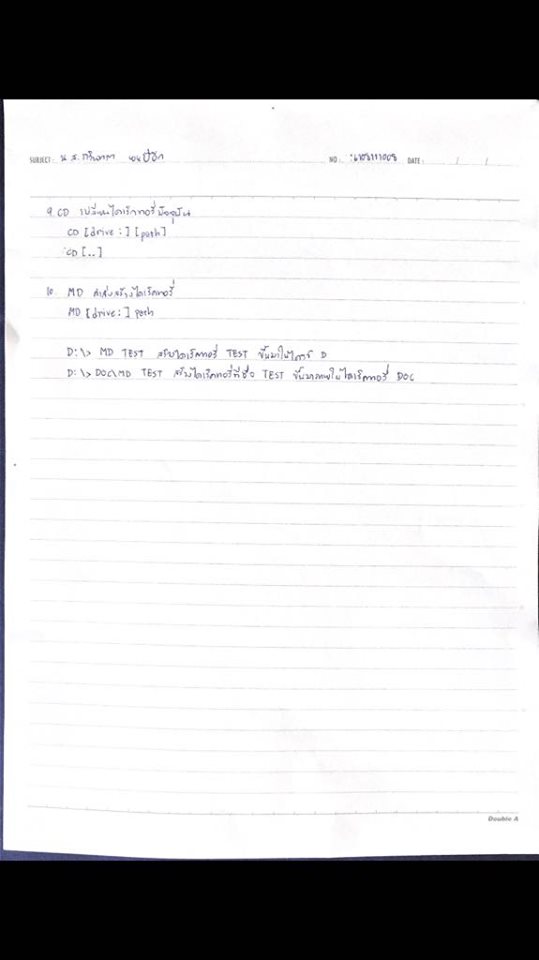 SUBJECT: น.ส.
NO. DATE: / /
9. CD เปลี่ยนไดเร็กทอรี่ปัจจุบัน
CD [drive:] [path]
CD [..]
10. MD คำสั่งสร้างไดเร็คทอรี่
MD [drive:] path
D:\> MD TEST สร้างไดเร็คทอรี่ TEST ขึ้นมาในไดรว์ D
D:\> DOC\MD TEST สร้างไดเร็คทอรี่ที่ชื่อ TEST ขึ้นมาภายในไดเร็คทอรี่ DOC
Double A